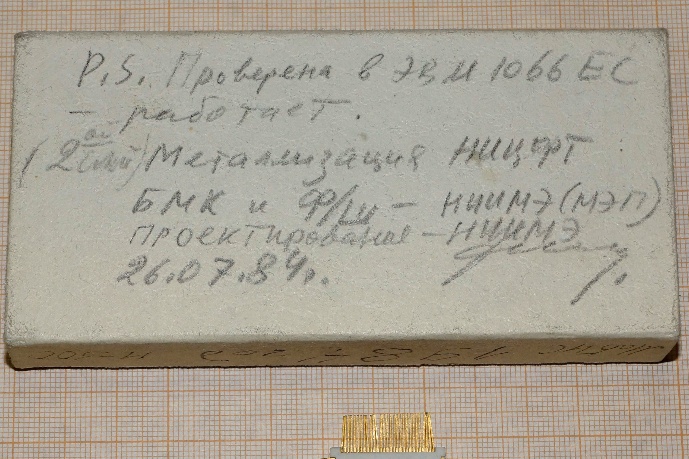 P.S. Проверена в ЭВМ 1066 ЕС
– работает.
(2ой слой) Металлизация НИЦЭВТ
БМК и Ф/Ц – НИИМЭ (МЭП)
проектирование – НИИМЭ
26.07.84г.